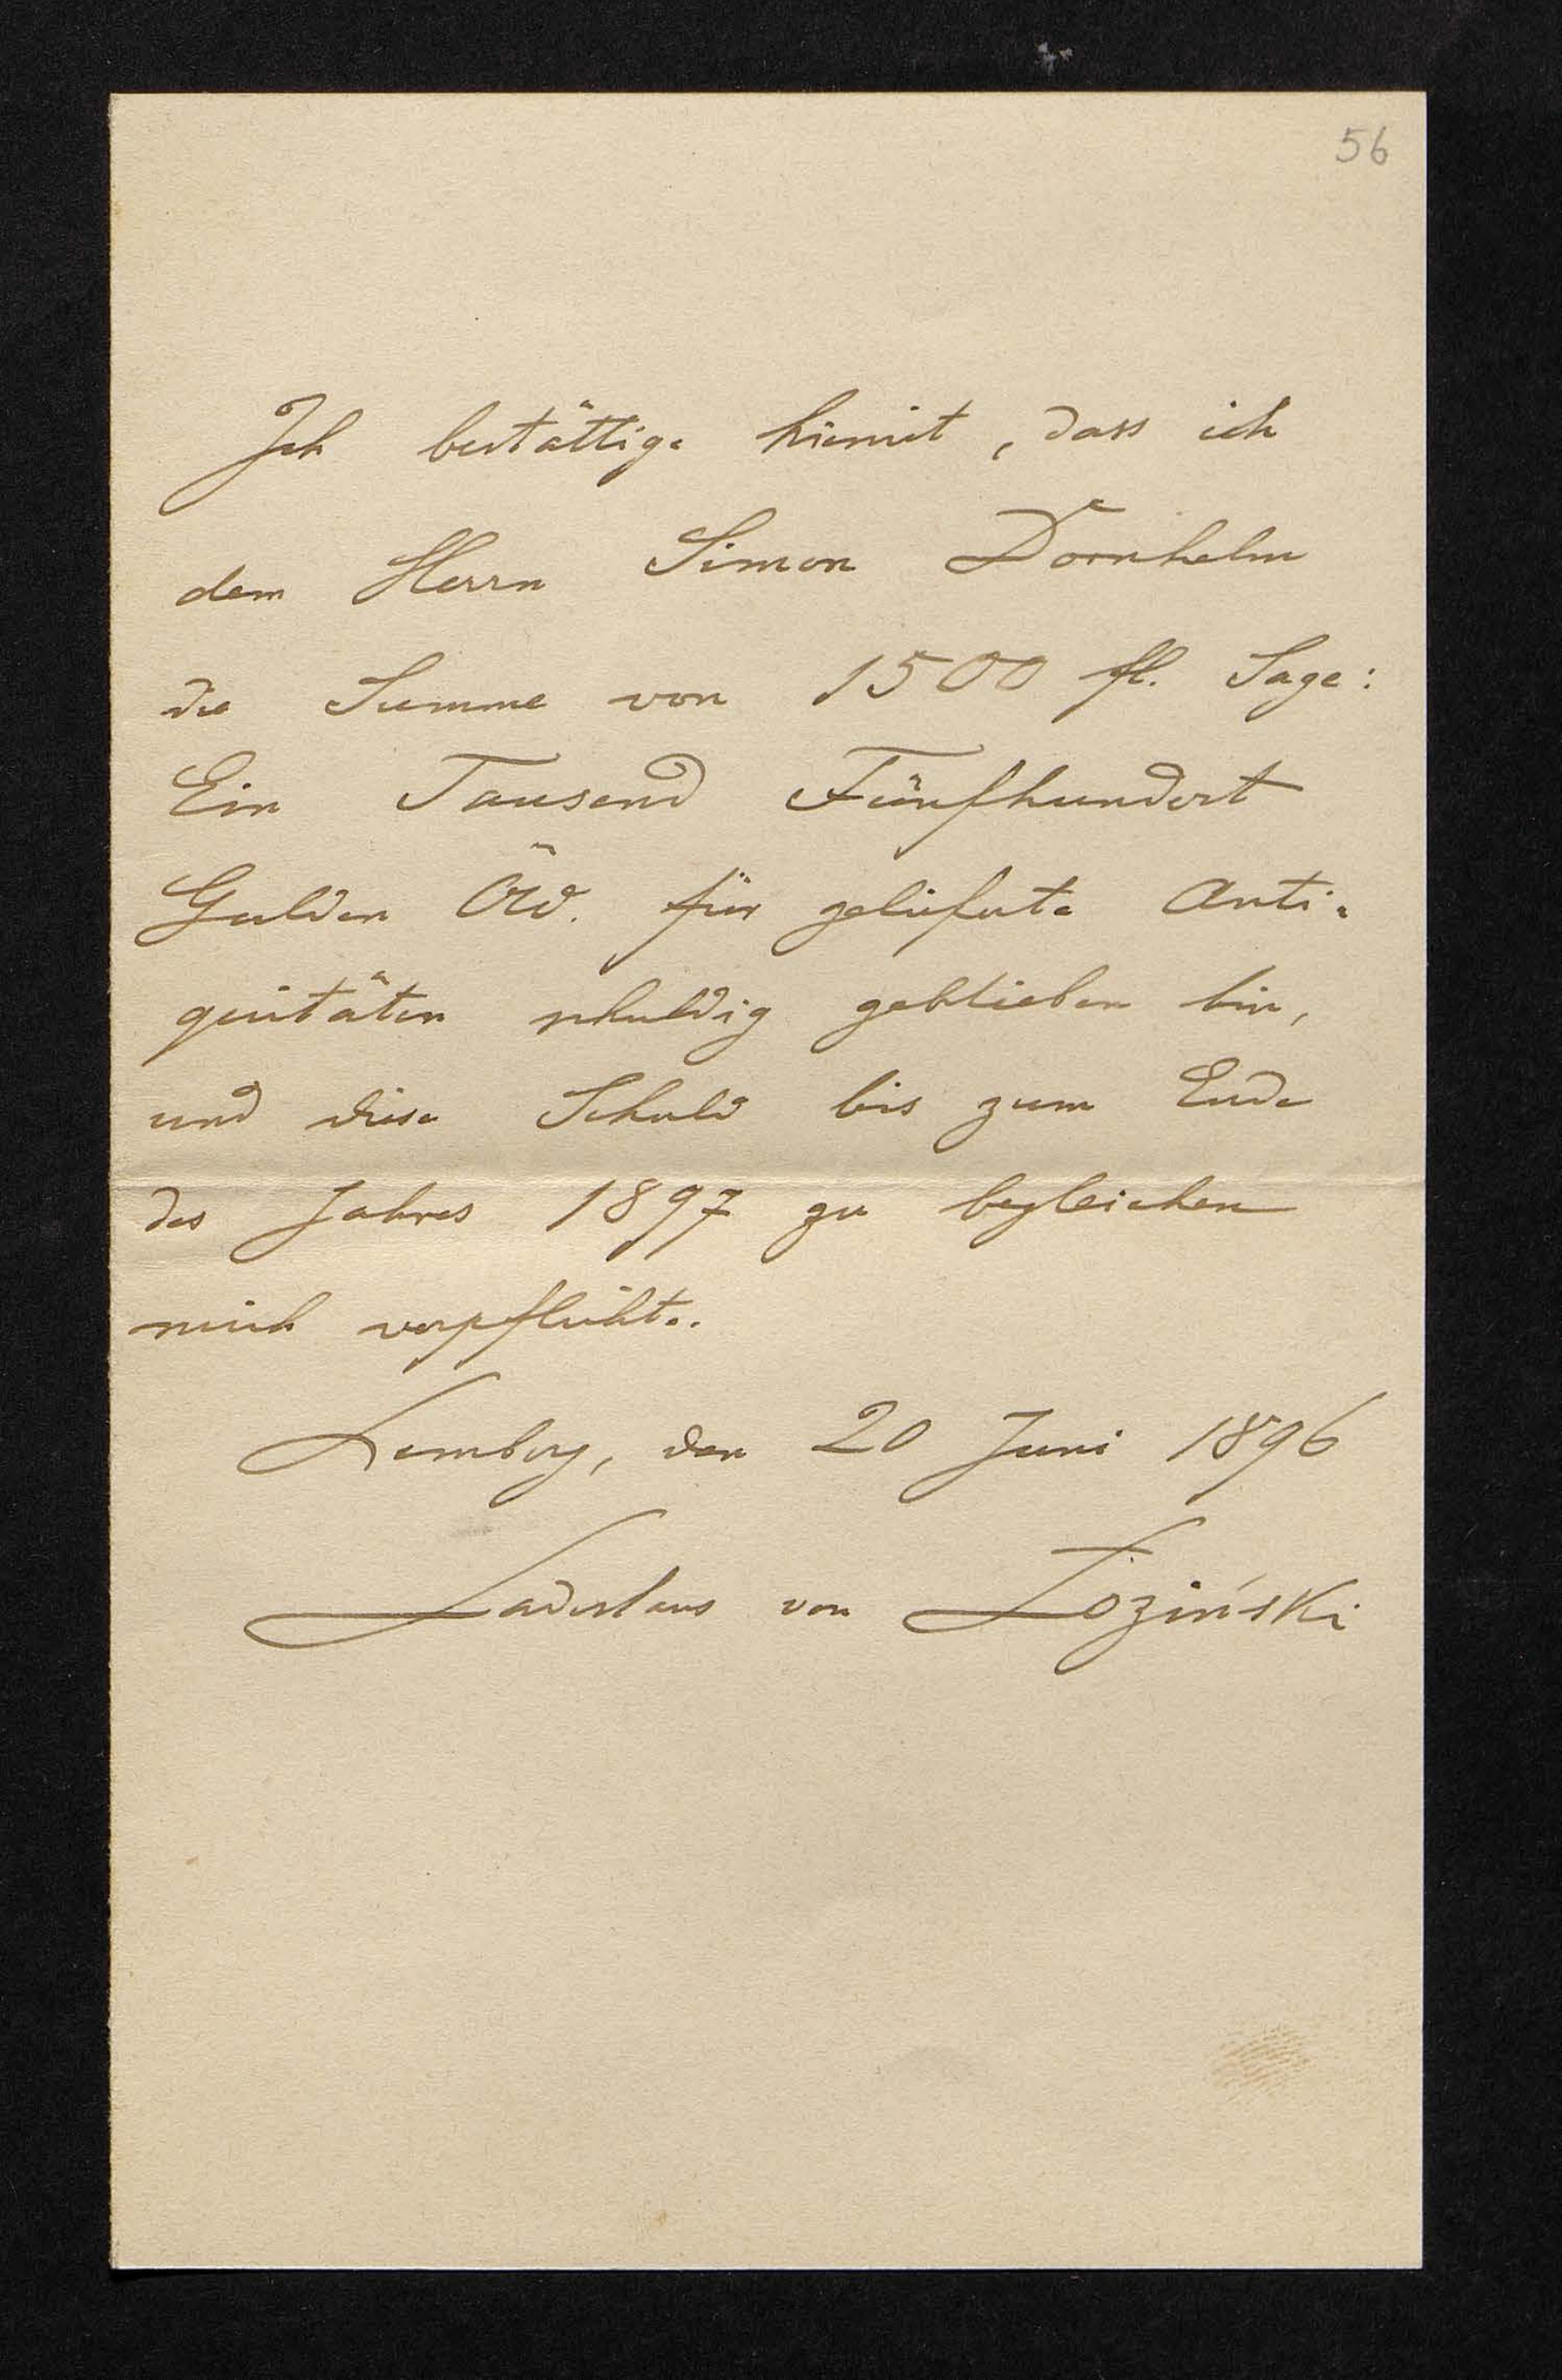 56
Ich bestättige hiemit, dass ich
dem Herrn Simon Dornhelm
die Summe von 1500 fl. Sage:
Ein Tausend Fünfhundert
Gulden ÖW. für gelieferte Anti-
quitäten schuldig geblieben bin,
und diese Schuld bis zum Ende
des Jahres 1897 zu begleichen
mich verpflichte.
Lemberg, den 20 Juni 1896
Ladislaus von Łoziński